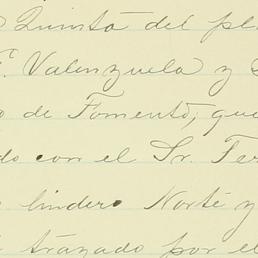 Quinta del pl
F. Valenzuela y S
o de Fomento, que
do con el Sr. Fer
lindero Norte y
trazado por el